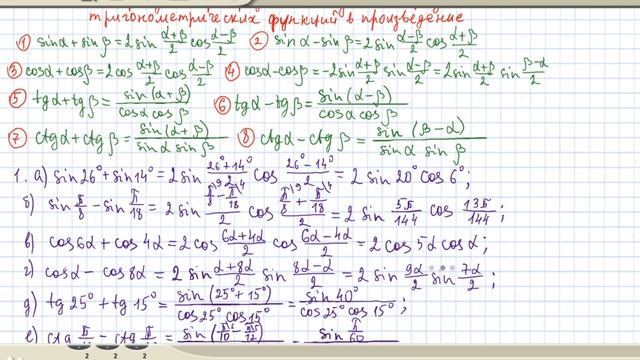 тригонометрических функций в произведение
① sinα + sinβ = 2sin (α+β)/2 cos (α-β)/2 ② sinα - sinβ = 2sin (α-β)/2 cos (α+β)/2
③ cosα + cosβ = 2cos (α+β)/2 cos (α-β)/2 ④ cosα - cosβ = -2sin (α+β)/2 sin (α-β)/2 = 2sin (α+β)/2 sin (β-α)/2
⑤ tgα + tgβ = sin(α+β)/(cosα cosβ) ⑥ tgα - tgβ = sin(α-β)/(cosα cosβ)
⑦ ctgα + ctgβ = sin(α+β)/(sinα sinβ) ⑧ ctgα - ctgβ = sin(β-α)/(sinα sinβ)
1. а) sin26° + sin14° = 2sin (26°+14°)/2 cos (26°-14°)/2 = 2 sin 20° cos 6°;
б) sin π/8 - sin π/18 = 2 sin (π/8 - π/18)/2 cos (π/8 + π/18)/2 = 2 sin 5π/144 cos 13π/144;
в) cos6α + cos 4α = 2 cos (6α+4α)/2 cos (6α-4α)/2 = 2 cos 5α cosα;
г) cosα - cos8α = 2 sin (α+8α)/2 sin (8α-α)/2 = 2 sin 9α/2 sin 7α/2;
д) tg 25° + tg 15° = sin(25°+15°)/(cos25° cos15°) = sin 40°/(cos25° cos15°);
е) ctg π - ctg π = sin(π/10 - π/12) = sin π/60